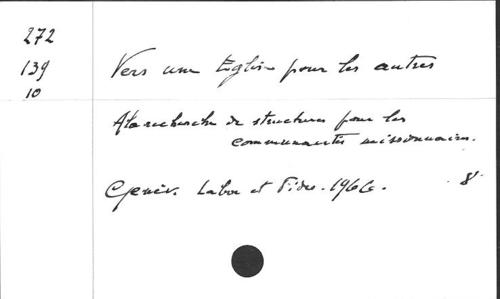 272
139
10
Vers une Église pour les autres
A la recherche de structures pour les
communautés missionnaires.
Genèv. Labor et Fides. 1966. 8°